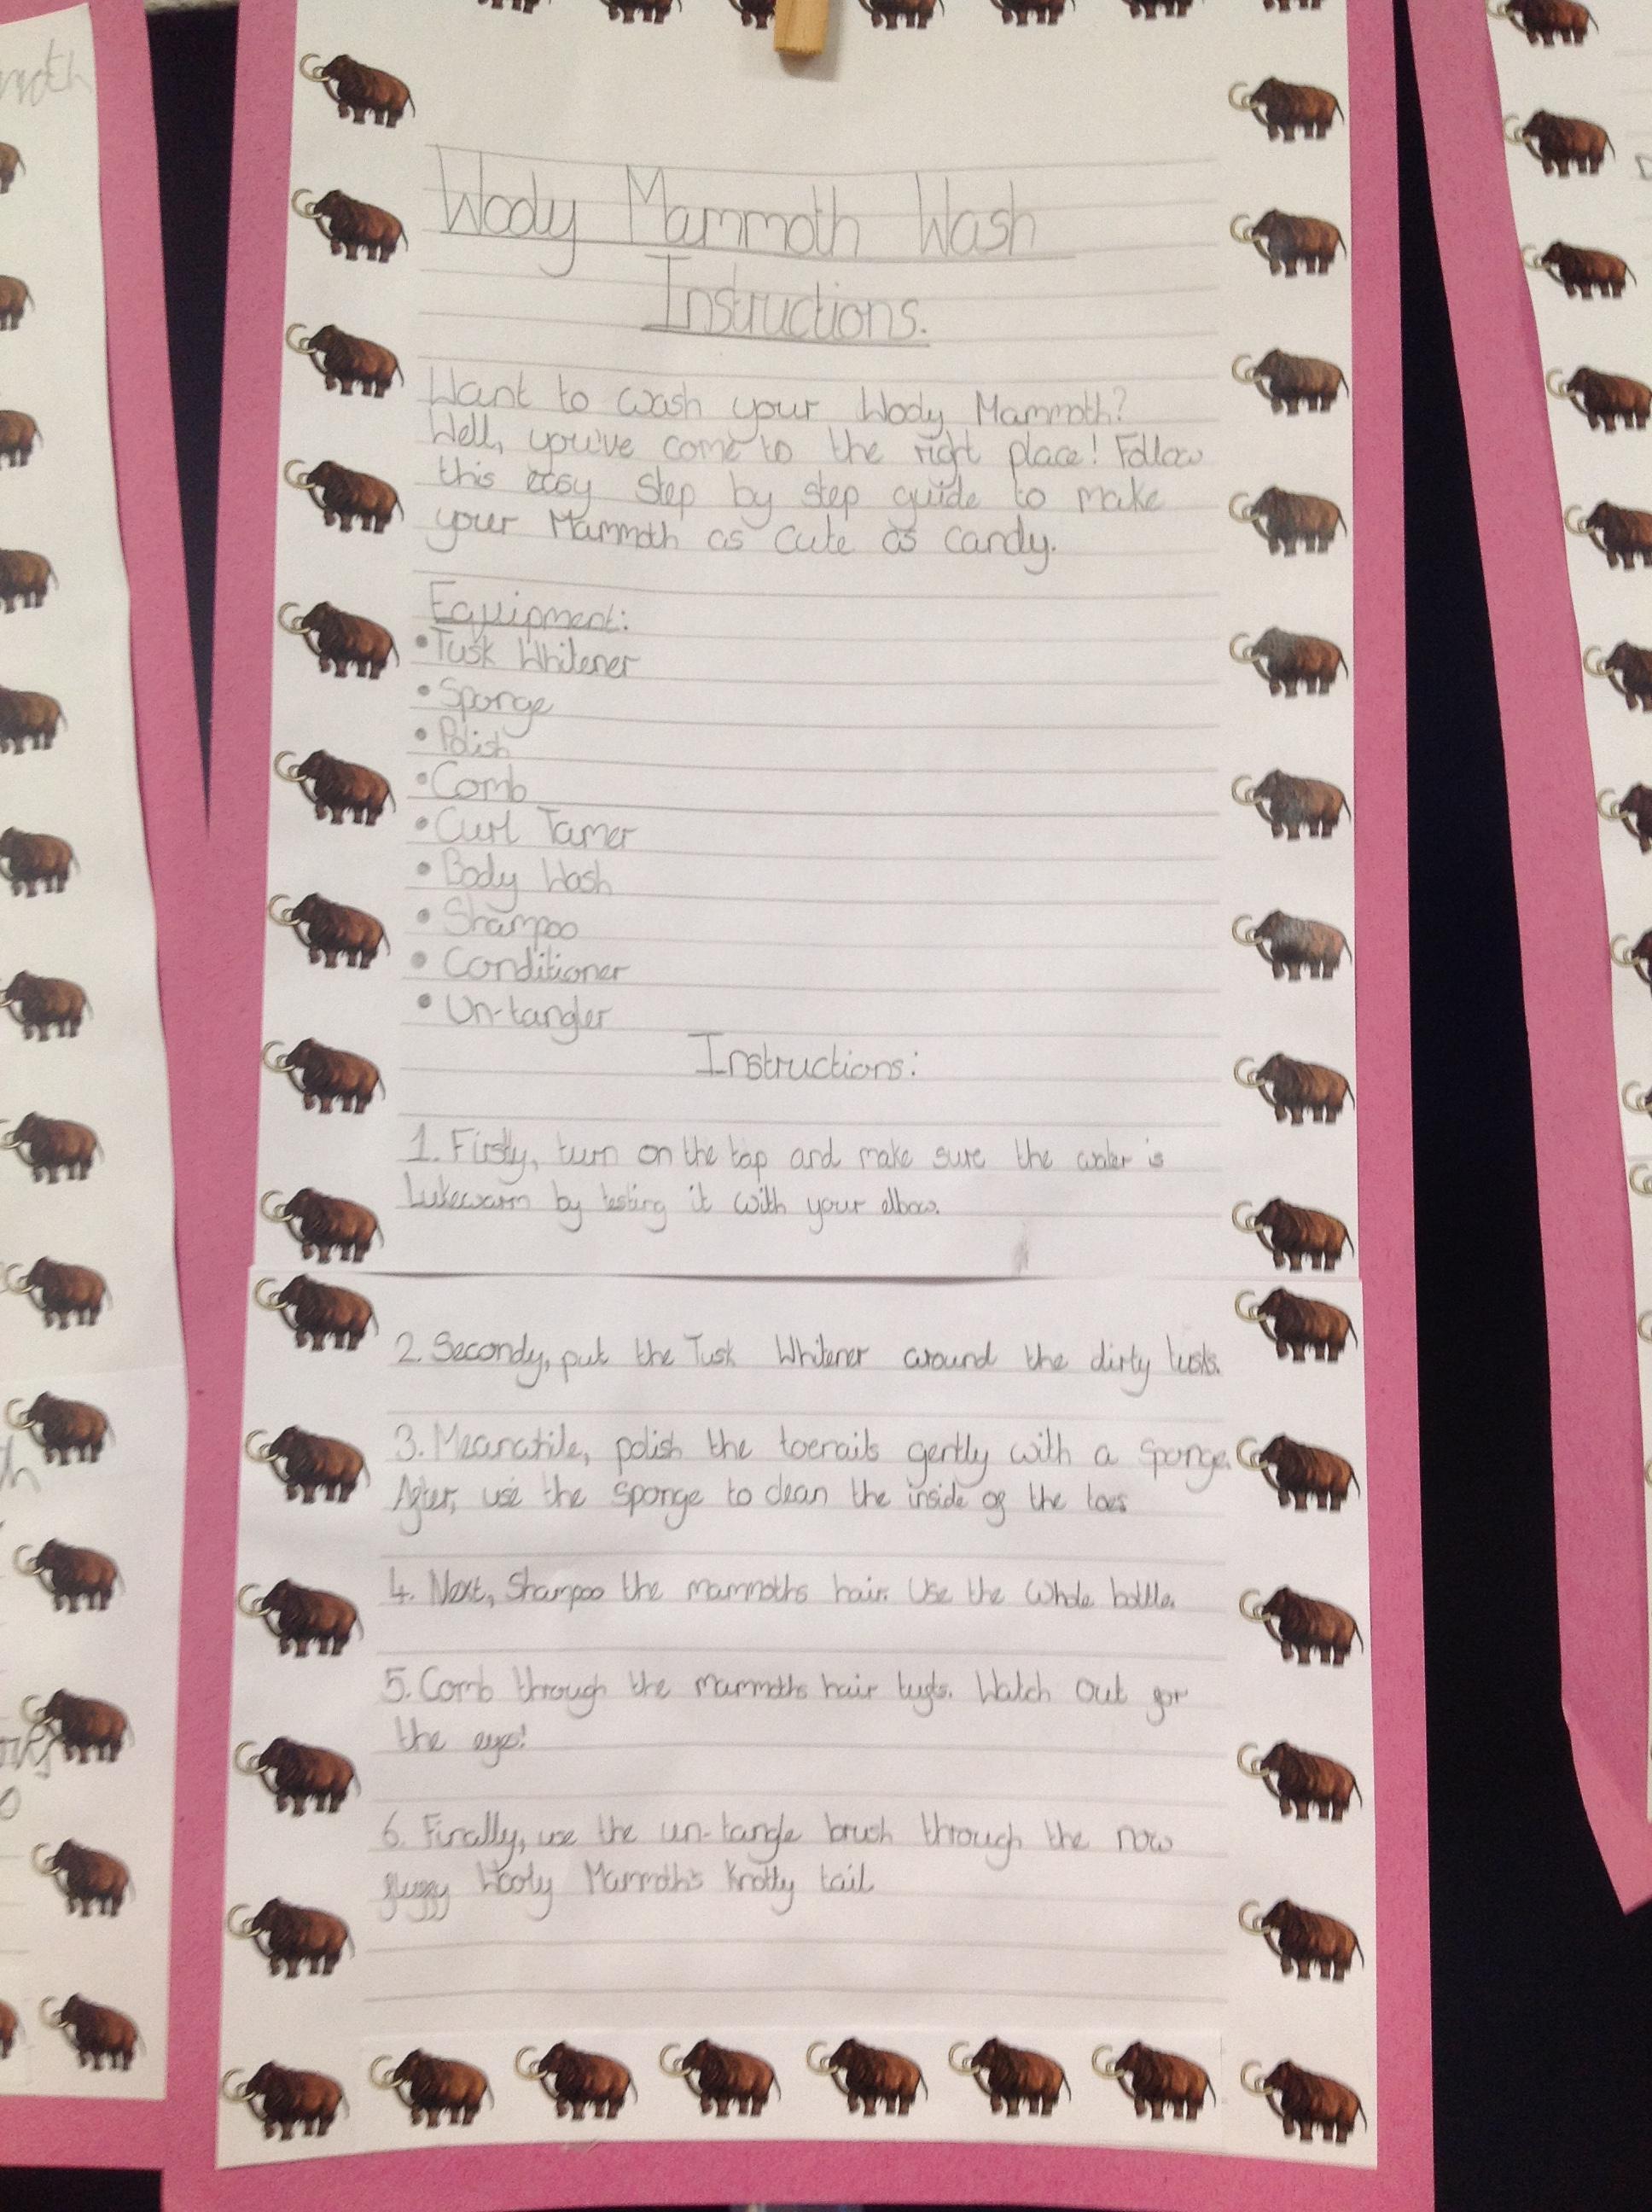 Wooly Mammoth Wash
Instructions.
Want to wash your Wooly Mammoth?
Well, you've come to the right place! Follow
this easy step by step guide to make
your Mammoth as cute as candy.
Equipment:
• Tusk Whitener
• Sponge
• Polish
• Comb
• Curl Tamer
• Body Wash
• Shampoo
• Conditioner
• Un-tangler
Instructions:
1. Firstly, turn on the tap and make sure the water is
Lukewarm by testing it with your elbow.
2. Secondy, put the Tusk Whitener around the dirty tusks.
3. Meanwhile, polish the toenails gently with a sponge.
After, use the sponge to clean the inside of the toes
4. Next, Shampoo the mammoths hair. Use the whole bottle.
5. Comb through the mammoths hair tufts. Watch out for
the eyes!
6. Finally, use the un-tangle brush through the now
fluffy Wooly Mammoth's knotty tail